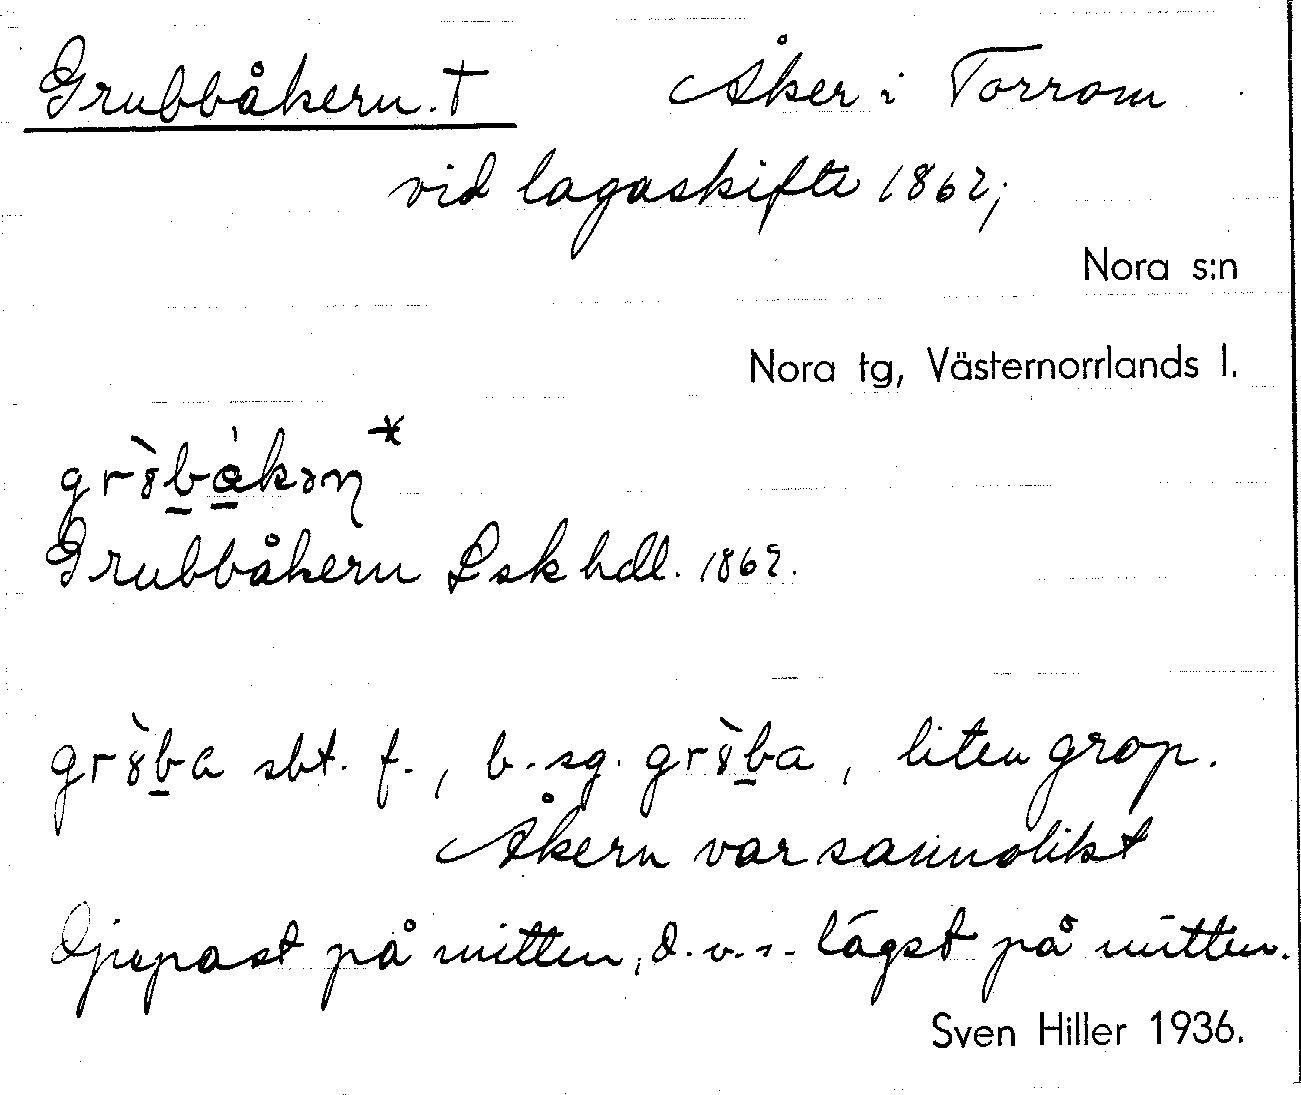 Grubbåkern. † Åker i Torrom
vid lagaskifte 1862;
Nora s:n
Nora tg, Västernorrlands l.
Grubbåkern Lsk hdl. 1862.
sbt. f., b. sg. , liten grop.
Åkern var sannolikt
djupast på mitten, d.v.s. lägst på mitten.
Sven Hiller 1936.